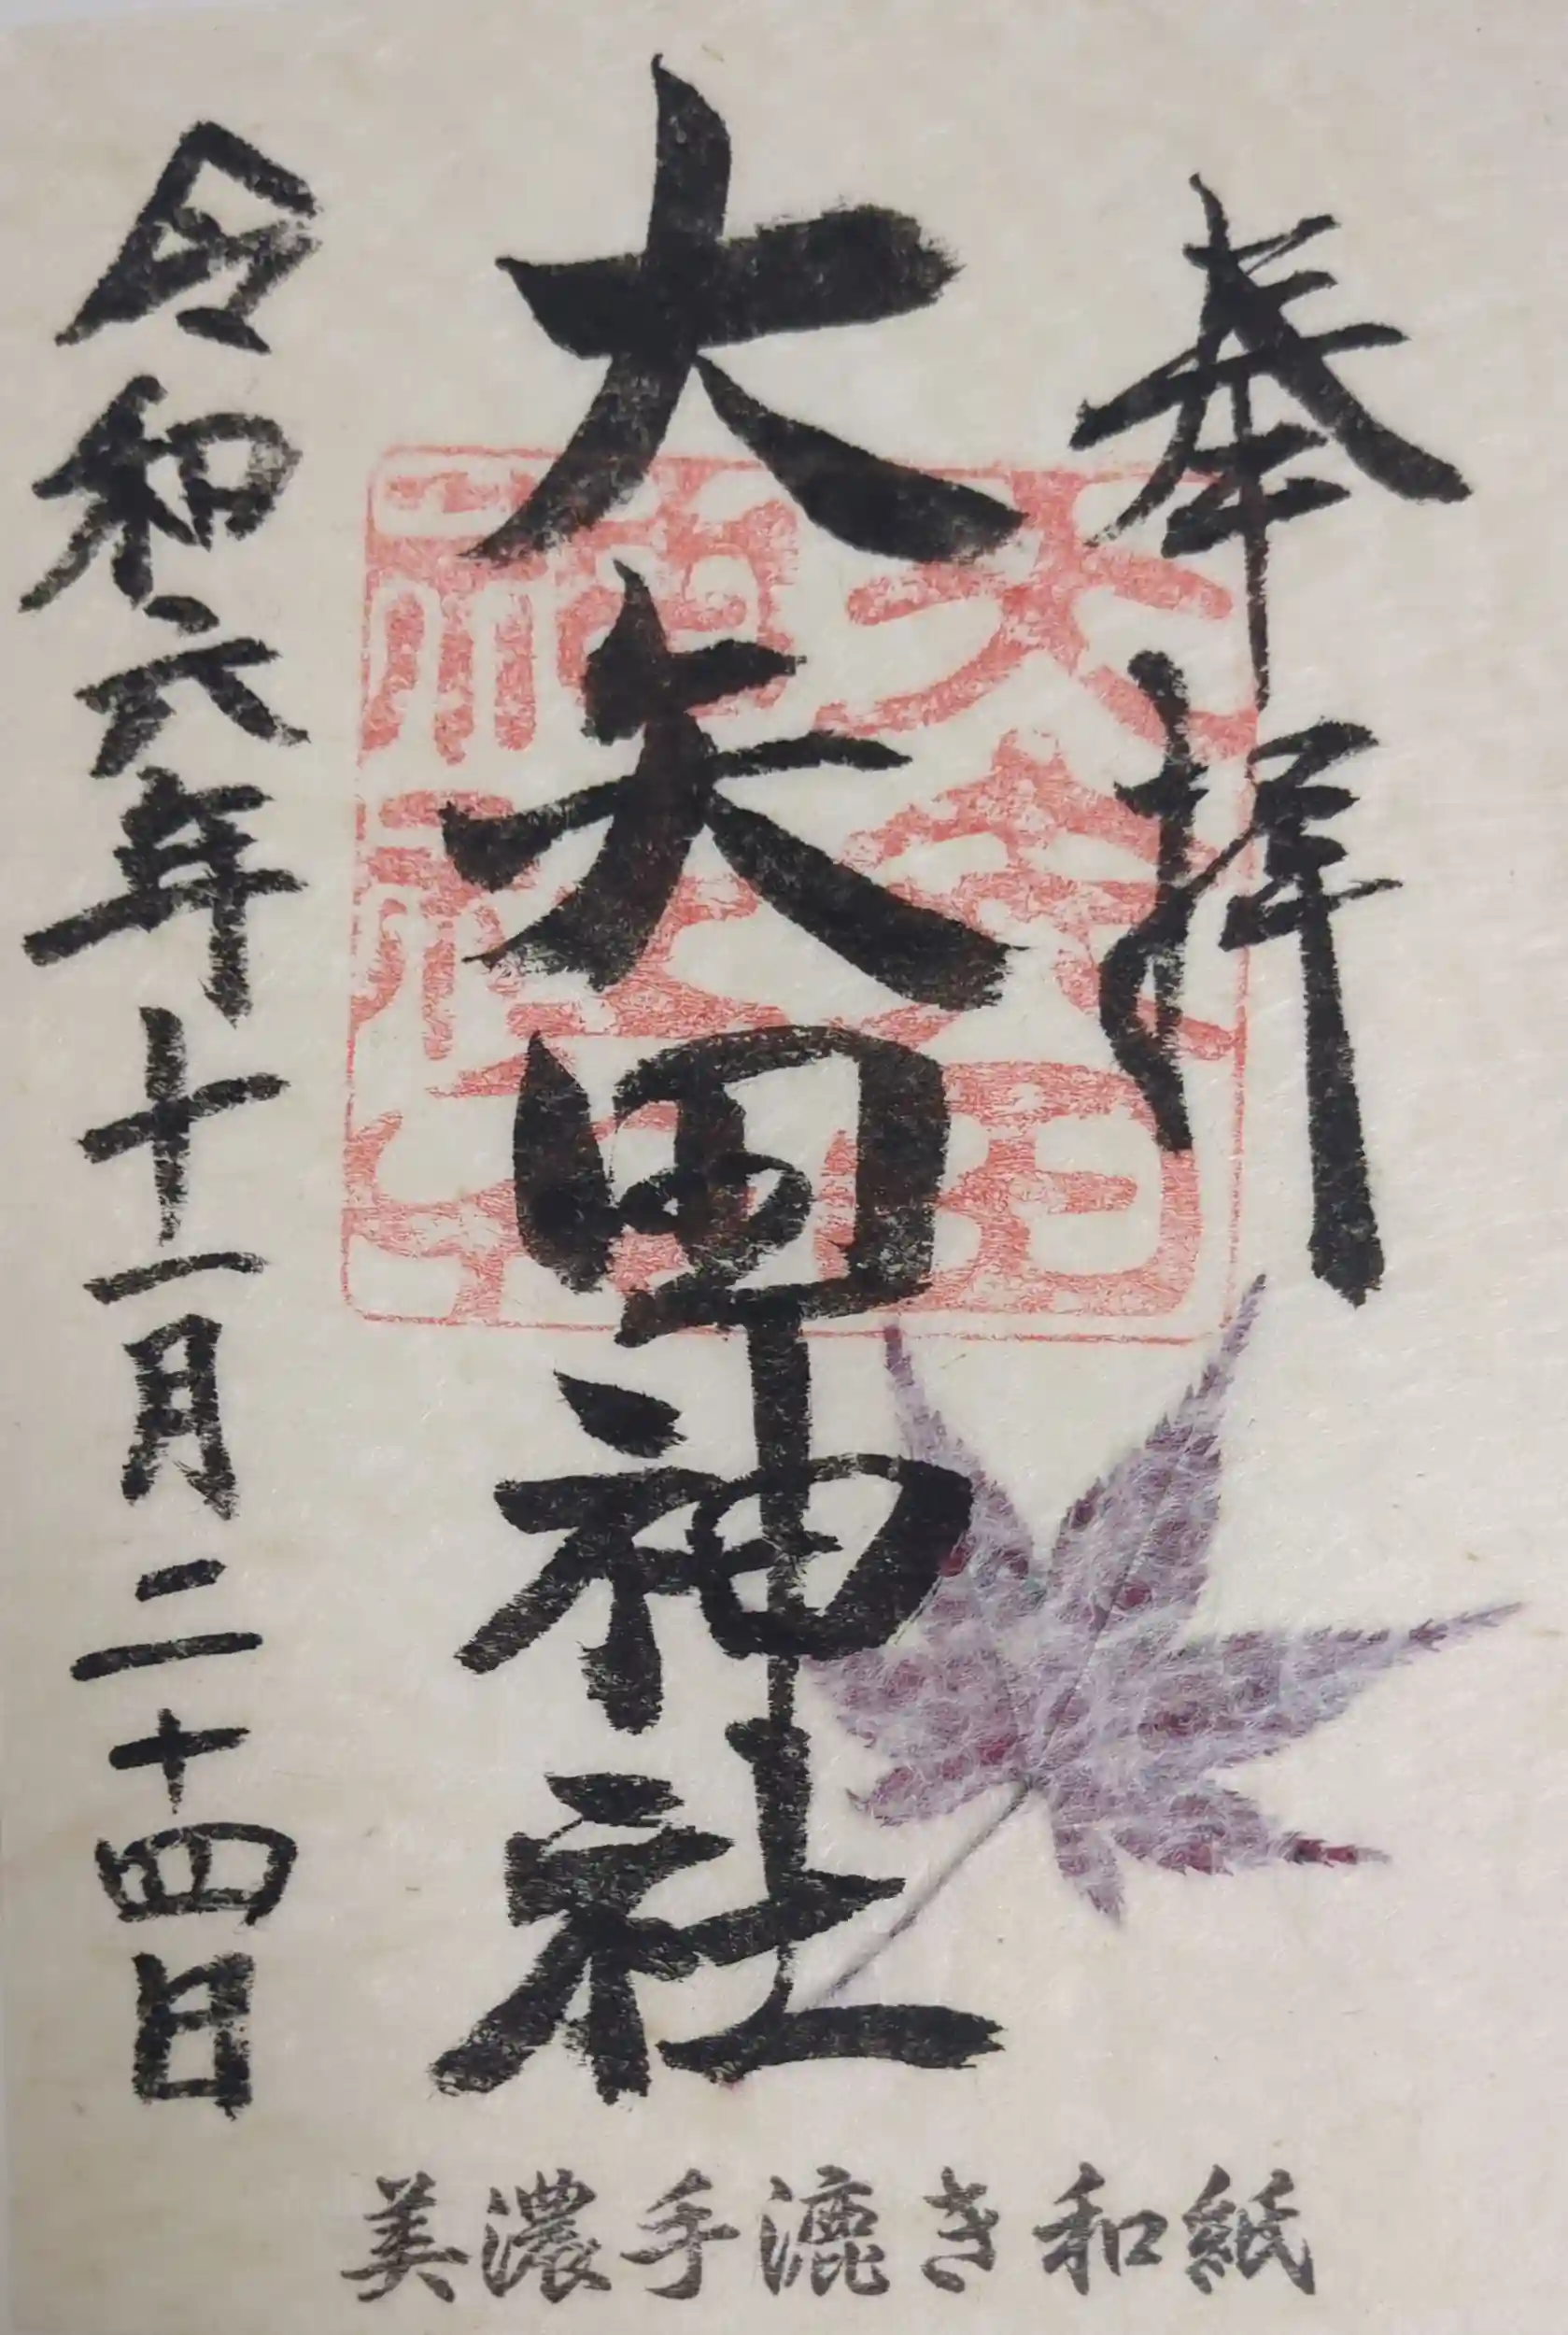 奉拝
大矢田神社
大矢田
神社印
令和六年十一月二十四日
美濃手漉き和紙